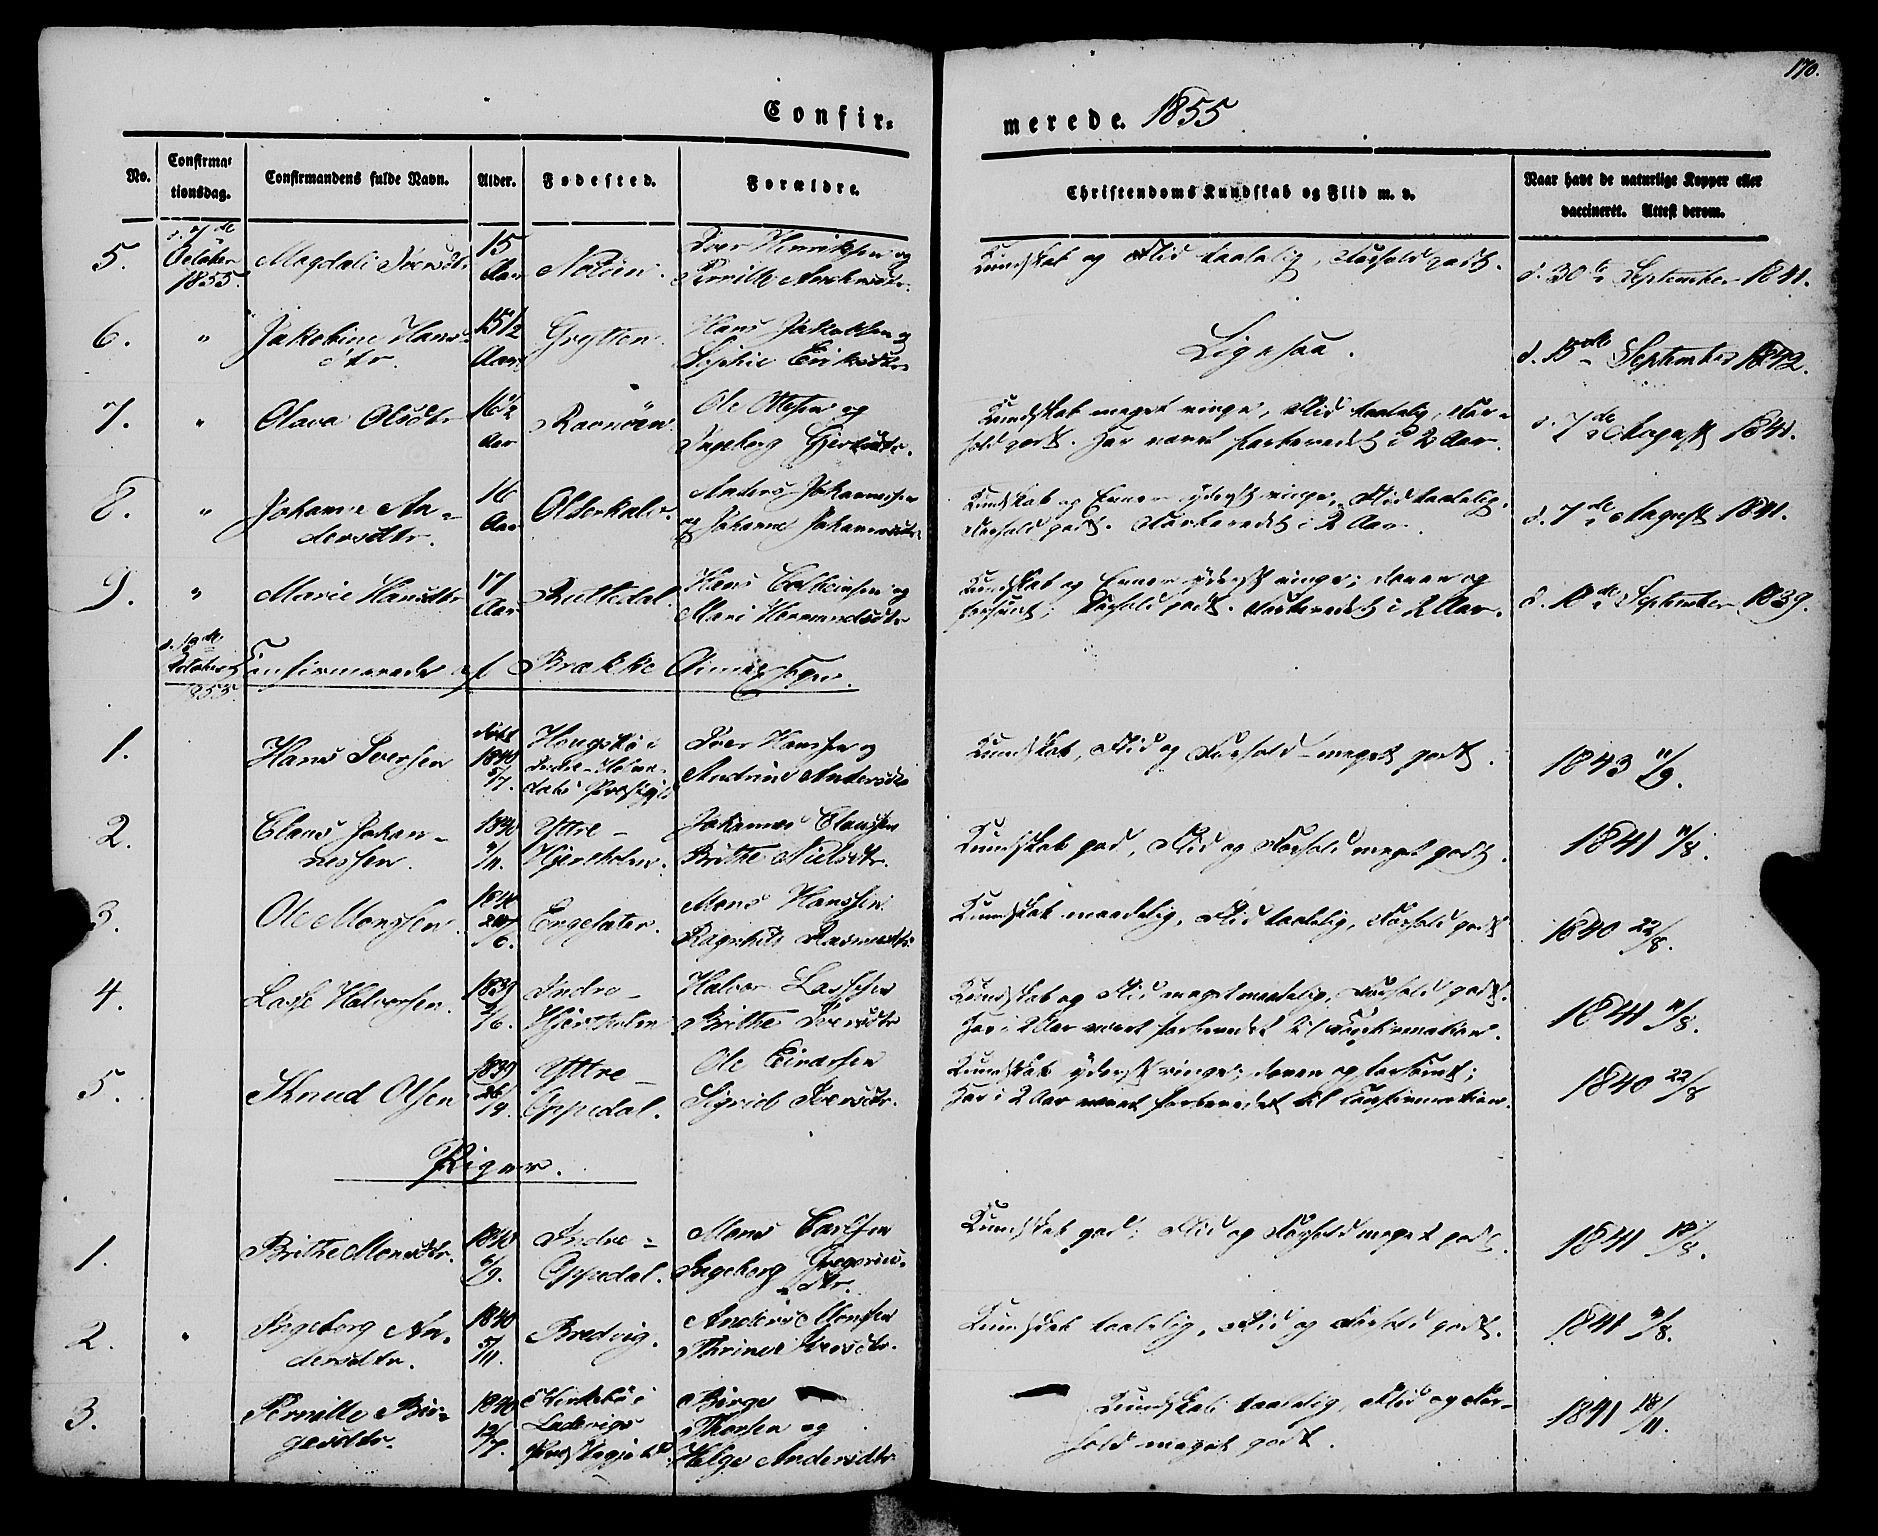 170.
Confir-
merede. 1855
No.
Confirma-
tionsdag.
Confirmandens fulde Navn.
Alder.
Fødested.
Forældre.
Christendoms Kundskab og Flid m. v.
Naar havt de naturlige Kopper eller
vaccineret. Attest derom.
5.
October
1855.
Magdali Iversdtr.
15
Aar
Iver Henriksen og
Pernille
Kundskab og Flid taalelig, Forhold godt.
d. 30te September 1841.
6.
"
Jakobine Hans-
dtr.
15 1/2
Aar
Grytten.
Hans Jakobsen og
Sophie Eriksdtr.
Ligesaa.
d. 15de September 1842.
7.
"
Olava Olsdtr
16 1/2
Aar
Ravnøen
Ole Olsen og
Ingeborg
Kundskab meget ringe, Flid taalelig, For-
hold godt. Har været forberedet i 2 Aar.
d. 7de August 1841.
8.
"
Johanne An-
dersdtr.
16
Aar
Anders Johannesen
og Johanne Johannesdtr.
Kundskab og Evner yderst ringe, Flid taalelig.
Forhold godt. Forberedet i 2 Aar.
d. 7de August 1841.
9.
"
Marie Hansdtr
17
Aar
Rutledal.
Hans
Mari Hermundsdtr
Kundskab og Evner yderst ringe; doven og
forsømt; Forhold godt. Forberedet i 2 Aar.
d. 10de September 1839.
October
1855.
Confirmerede af Brække Annex Sogn.
1.
Hans Iversen
født
1840
5/7.
Iver Hansen og
Andrine Andersdtr
Kundskab, Flid og Forhold meget godt.
1843 11/9.
2.
Claus Johan-
nessen.
1840
Yttre-
Hjertholm.
Johannes Claussen
Brithe Nielsdtr.
Kundskab god, Flid og Forhold meget godt.
1841 11/8.
3.
Ole Monssen.
1840
Engesæter.
Mons Hanssen
Ragnhild Rasmusdtr
Kundskab maadelig, Flid taalelig, Forhold godt
1840 22/8.
4.
Lasse Halvorsen.
1839
2/6.
Indre-
Hjertholm
Halvor Lassesen
Brithe Iversdtr
Kundskab og Flid meget maadelig, Forhold godt.
Har i 2 Aar været forberedet til Confirmation.
1841 11/8.
5.
Knud Olsen
1839
26/9.
Yttre-
Oppedal.
Ole Einarsen
Sigrid Iversdtr.
Kundskab yderst ringe; doven og forsømt;
Har i 2 Aar været forberedet til Confirmation.
1840 22/8
Piger.
1.
Brithe Monsdtr.
1840
6/9.
Indre-
Oppedal.
Mons Carlsen
Ingeborg Gregorius-
dtr.
Kundskab god; Flid og Forhold meget godt.
1841
2.
"
Ingeborg An-
dersdtr.
1840
5/11.
Bredvig.
Anders Monsen
Thrine Iversdtr.
Kundskab taalelig, Flid og Forhold godt.
1841
3.
Pernille Bir-
gesdtr.
1840
12/7.
Kirkebø i
Ladevigs
Præstegjeld
Birge
Thorsen og
Helge Andersdtr
Kundskab taalelig, Flid og For-
hold meget godt.
1841 18/11.